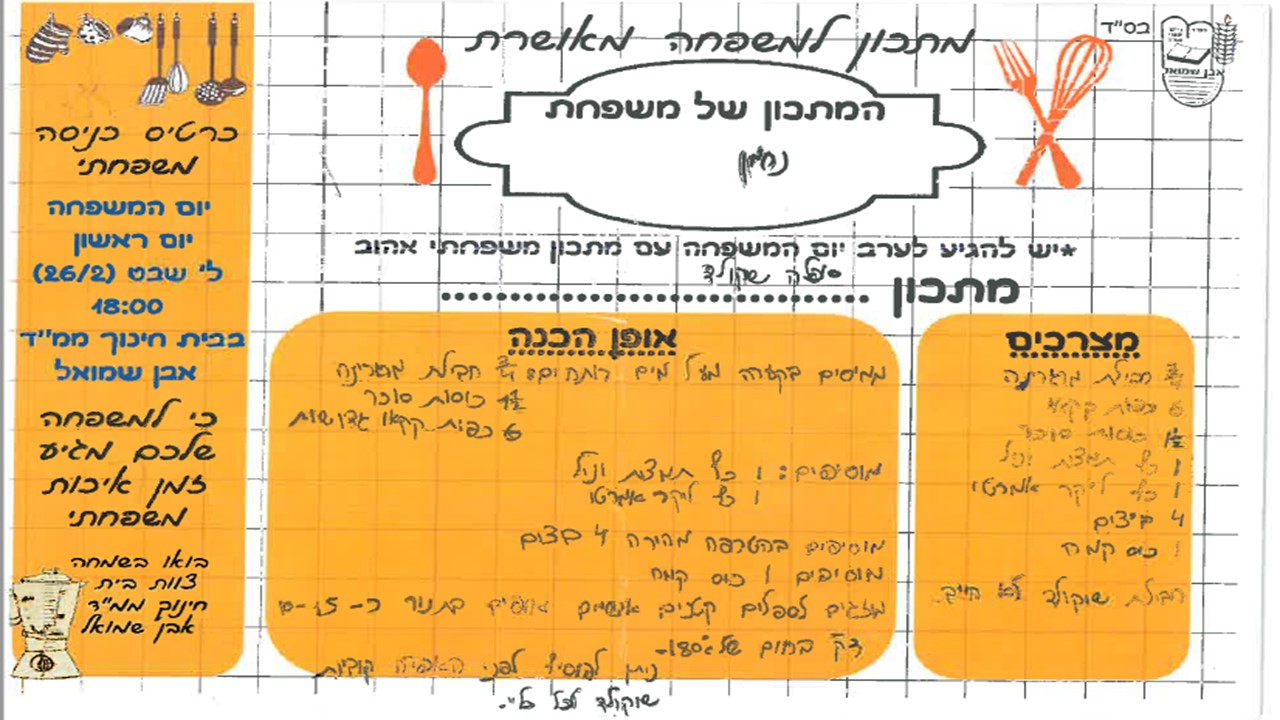 בס"ד
אבן שמואל
מתכון למשפחה מאושרת
המתכון של משפחת
*יש להגיע לערב יום המשפחה עם מתכון משפחתי אהוב
מתכון
שוקולד
מצרכים
חבילת מרגרינה
6 כפות קקאו
1½ כוסות סוכר
1 כף תמצת וניל
1 כף ליקר אמרטו
4 ביצים
1 כוס קמח
חבולת שוקולד לא חייב.
אופן הכנה
ממיסים בקערה מעל מים רותחים: ¾ חבילת מרגרינה
1½ כוסות סוכר
6 כפות קקאו גדושות
מוסיפים: 1 כף תמצת וניל
1 כף ליקר אמרטו
מוסיפים בהטרפה מהירה 4 בצים
מוסיפים 1 כוס קמח
מוזגים לספלים קטנים אישיים אופים בתנור כ-10-15
דק' בחום של 180°-
ניתן להוסיף לפני האפיה קוביות
שוקולד לכל
כרטיס כניסה
משפחתי
יום המשפחה
יום ראשון
ל' שבט (26/2)
18:00
בבית חינוך ממ"ד
אבן שמואל
כי למשפחה
שלכם מגיע
זמן איכות
משפחתי
בואו בשמחה
צוות בית
חינוך ממ"ד
אבן שמואל